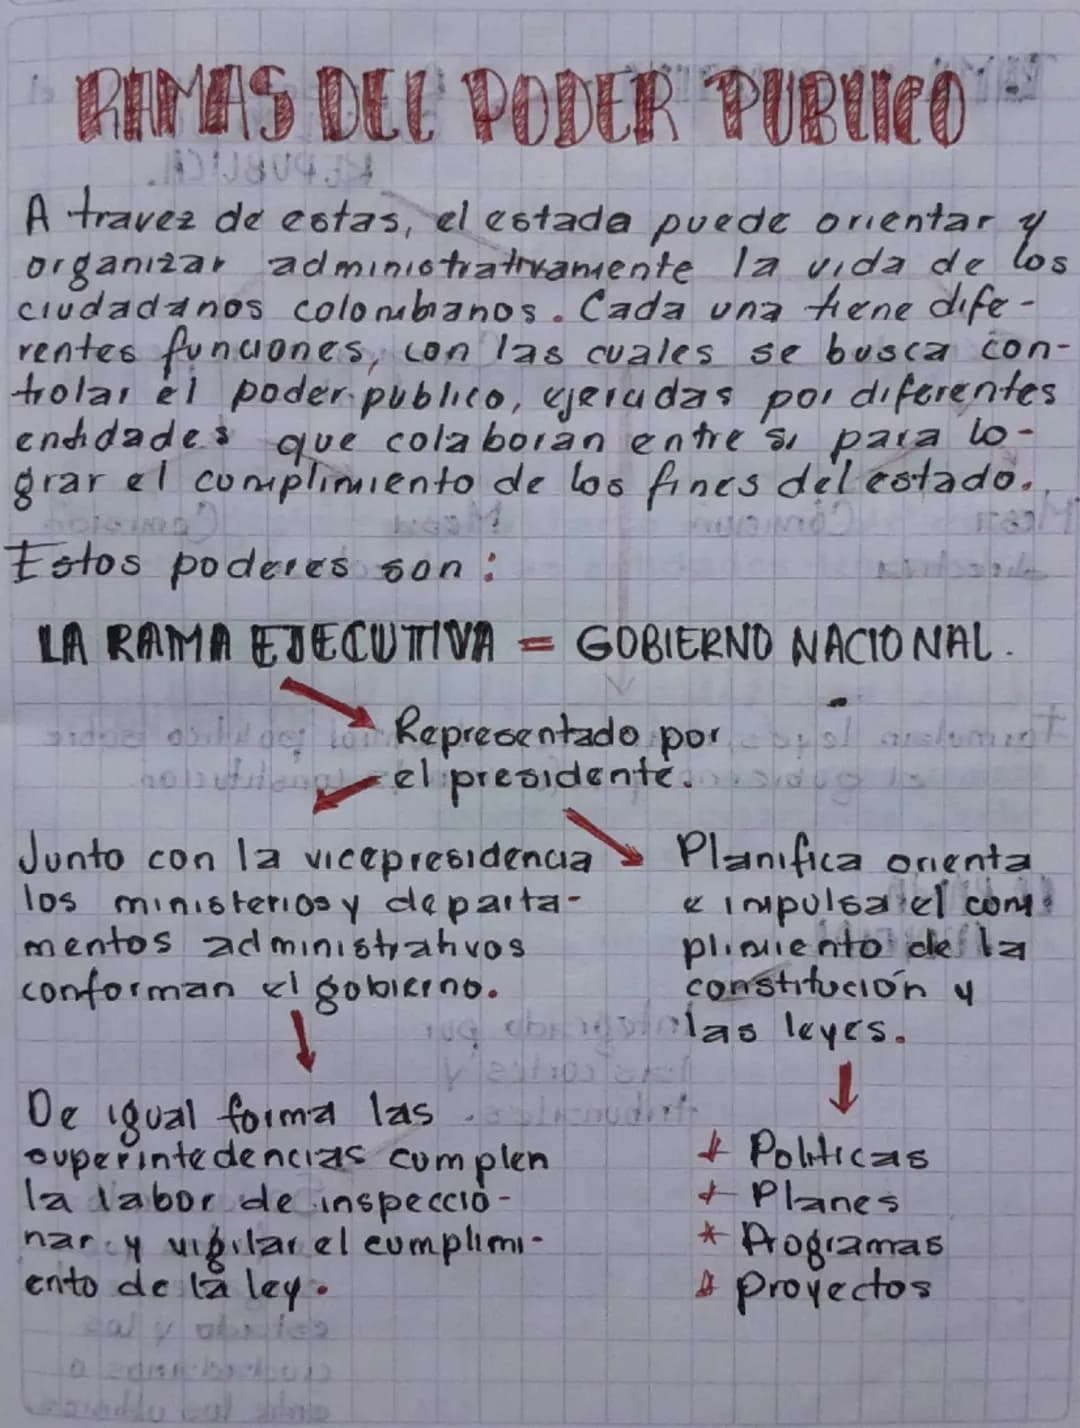 RAMAS DEL PODER PUBLICO
A travez de estas, el estado puede orientar y
organizar administrativamente la vida de los
ciudadanos colombianos. Cada una tiene dife-
rentes funciones, con las cuales se busca con-
trolar el poder publico, ejercidas por diferentes
entidades que colaboran entre si para lo-
grar el cumplimiento de los fines del estado.
Estos poderes son:
LA RAMA EJECUTIVA = GOBIERNO NACIONAL.
Representado por
el presidente.
Junto con la vicepresidencia
los ministerios y departa-
mentos administrativos
conforman el gobierno.
De igual forma las
superintedencias cumplen
la labor de inspeccio-
nar y vigilar el cumplimi-
ento de la ley.
Planifica orienta
e impulsa el com
plimiento de la
constitución y
las leyes.
Politicas
Planes
* Programas
proyectos